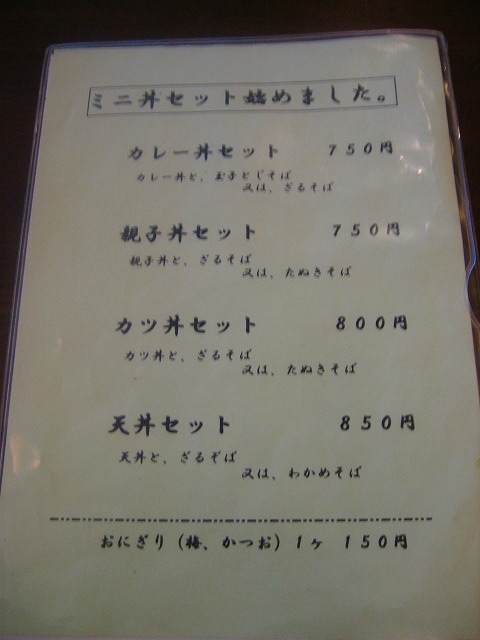 ミニ丼セット始めました。
カレー丼セット 750円
カレー丼と、玉子とじそば
又は、ざるそば
親子丼セット 750円
親子丼と、ざるそば
又は、たぬきそば
カツ丼セット 800円
カツ丼と、ざるそば
又は、たぬきそば
天丼セット 850円
天丼と、ざるそば
又は、わかめそば
おにぎり（梅、かつお）1ヶ 150円